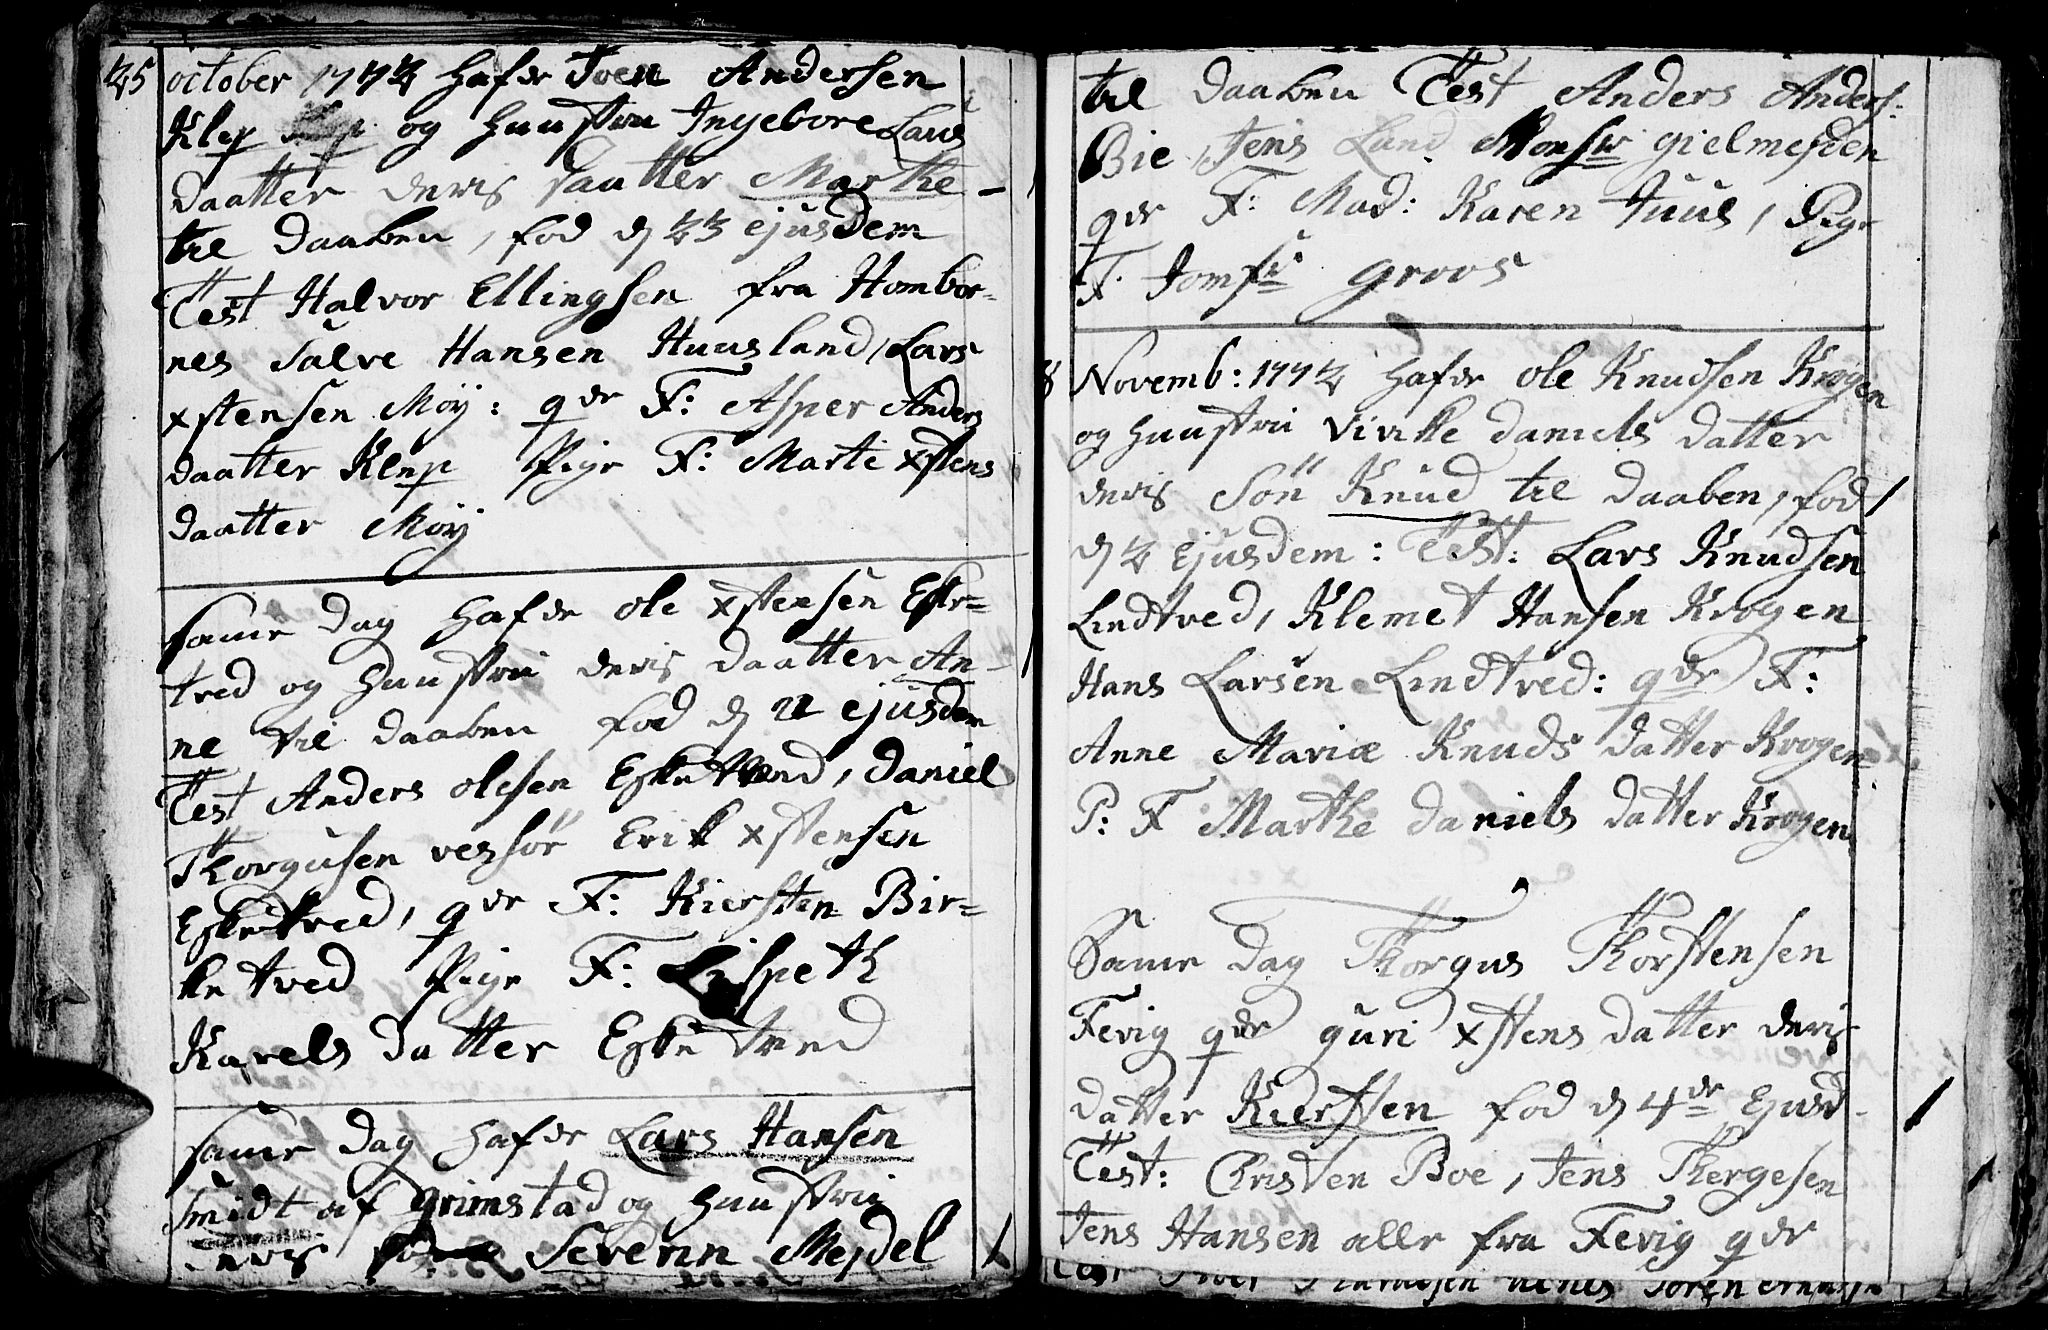 25 october 1772 hafde Toen Andersen
Klep og hustru Ingebore Lars
daatter deris daatter Marthe
til daaben, fød d 23 ejusdem
Test Halvor Ellingsen fra Hombor=
nes Salve Hansen Huusland, Lars
xstensen Møy: qde F: Asper Anders
daatter Klep Pige F: Marte xstens
daatter Møy
same dag hafde ole xstensen Eske=
tved og huustru deris daatter An-
ne til daaben fød d 22 ejusdem
Test Anders olesen Esketved, daniel
Thorgusen vessør Erik xstensen
Esketved, qde F: Kiersten Bir=
ketved Pige F: Lispeth
Karels datter Esketved
same dag hafde Lars Hansen
Smidt af grimstad og huustru
deris Severin Mejdel
til daaben Test Anders Anders:
Bie, Jens Lund Monsr gielmesden
qde F: Mad: Karen Juul, Pige
F: Jomfr groos
8 Novemb: 1772 hafde ole Knudsen Krogen
og huustru Vivike daniels datter
deris Søn Knud til daaben, fød
d 2 ejusdem: Test: Lars Knudsen
Lindtved, Klemet Hansen Krogen
Hans Larsen Lindtved: qde F:
Anne Mariæ Knuds datter Krogen
P: F Marthe daniels datter Krogen
Same dag Thorgus Thorstensen
Fevig qde guri xstens datter deris
datter Kiersten fød d 4de Ejusd
Test: Christen Boe, Jens Thergesen
Jens Hansen alle fra Fevig qde